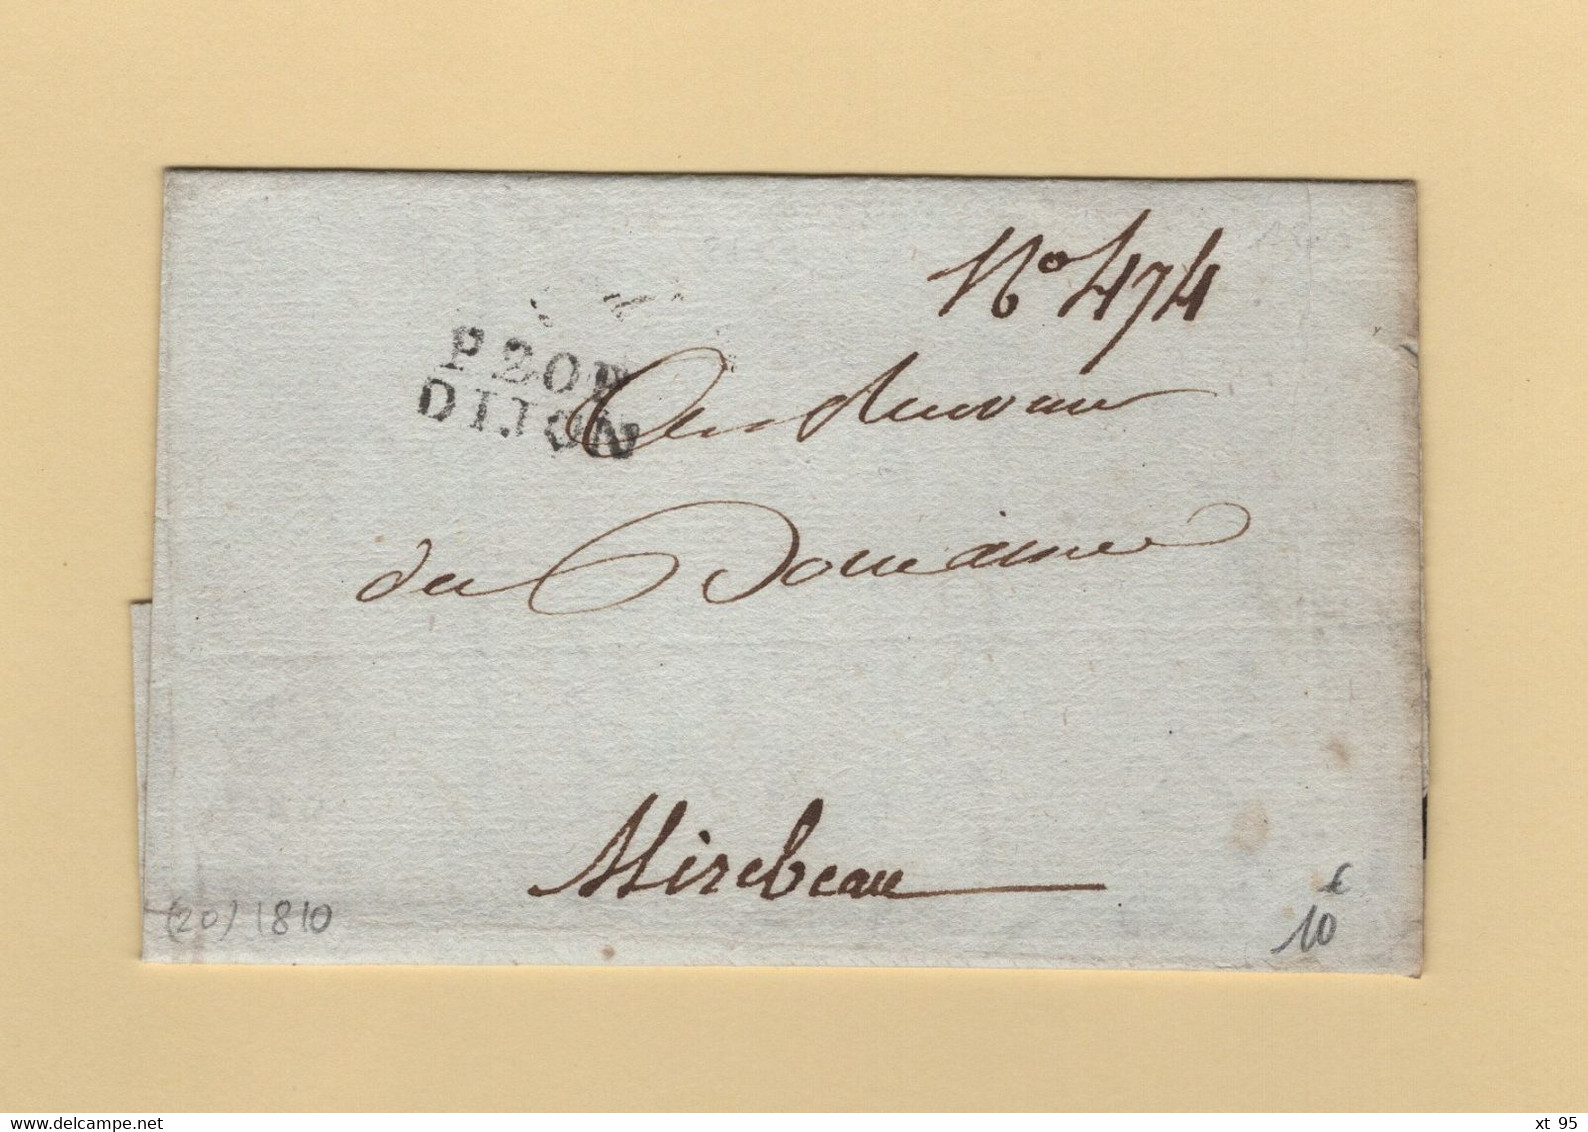 Nº 474
P.20.P.
DIJON
Au Receveur
du Domaine
Mirebeau
(20) 1810
€
10
delcampe.net
xt_95